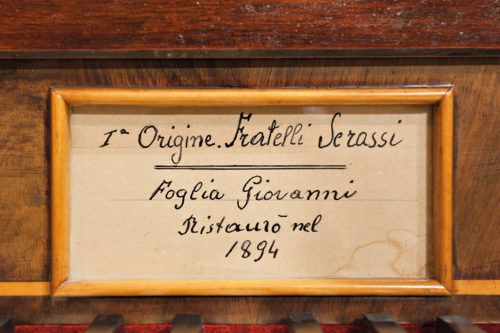 Iª Origine. Fratelli Serassi
Foglia Giovanni
Ristaurò nel
1894